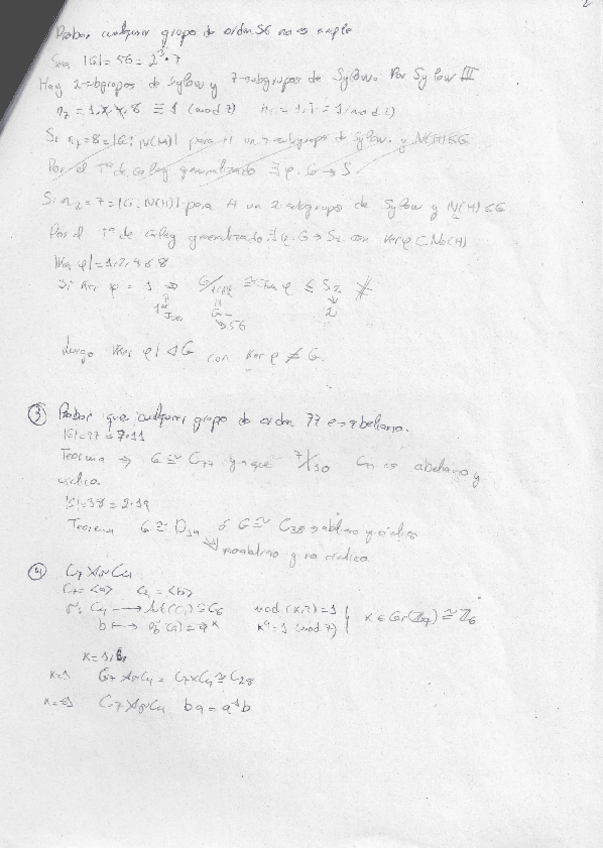 Probar cualquier grupo de orden 56 no es simple
Sea |G| = 56 = 2³·7
Hay 2-subgrupos de Sylow y 7-subgrupos de Sylow. Por Sylow III
n₇ = 1, 2, 4, 8 ≡ 1 (mod 7) n₂ = 1, 7 ≡ 1 (mod 2)
Si n₇ = 8 = |G: N(H)| para H un 7-subgrupo de Sylow y N(H) ≤ G
Por el Tª de Cayley generalizado ∃ φ: G → S
Si n₂ = 7 = |G: N(H)| para H un 2-subgrupo de Sylow y N(H) ≤ G
Por el Tª de Cayley generalizado ∃ φ: G → S₇ con Ker φ ⊂ N(H)
|Ker φ| = 1, 2, 4 ó 8
Si Ker φ = 1 ⇒ G/Ker φ ≅ Im φ ≤ S₇
1er Iso
G
56
Luego Ker φ ◁ G con Ker φ ≠ G.
③ Probar que cualquier grupo de orden 77 es abeliano.
|G| = 77 = 7·11
Teorema → G ≅ C₇₇ ya que 7∤10 C₇₇ es abeliano y
cíclico.
|G| = 38 = 2·19
Teorema G ≅ D₁₉ ó G ≅ C₃₈ → abeliano y cíclico
no abeliano y no cíclico
④ C₇ ⋊ C₄
C₇ = <a> C₄ = <b>
σ: C₄ → Aut(C₇) ≅ C₆ mcd (k,7) = 1
b ↦ σb(a) = aᵏ k⁴ ≡ 1 (mod 7) k ∈ Gr(Z₇) ≅ Z₆
k = 1, 6
k=1 C₇ ⋊ C₄ = C₇ × C₄ ≅ C₂₈
k=-1 C₇ ⋊ C₄ ba = a⁻¹b